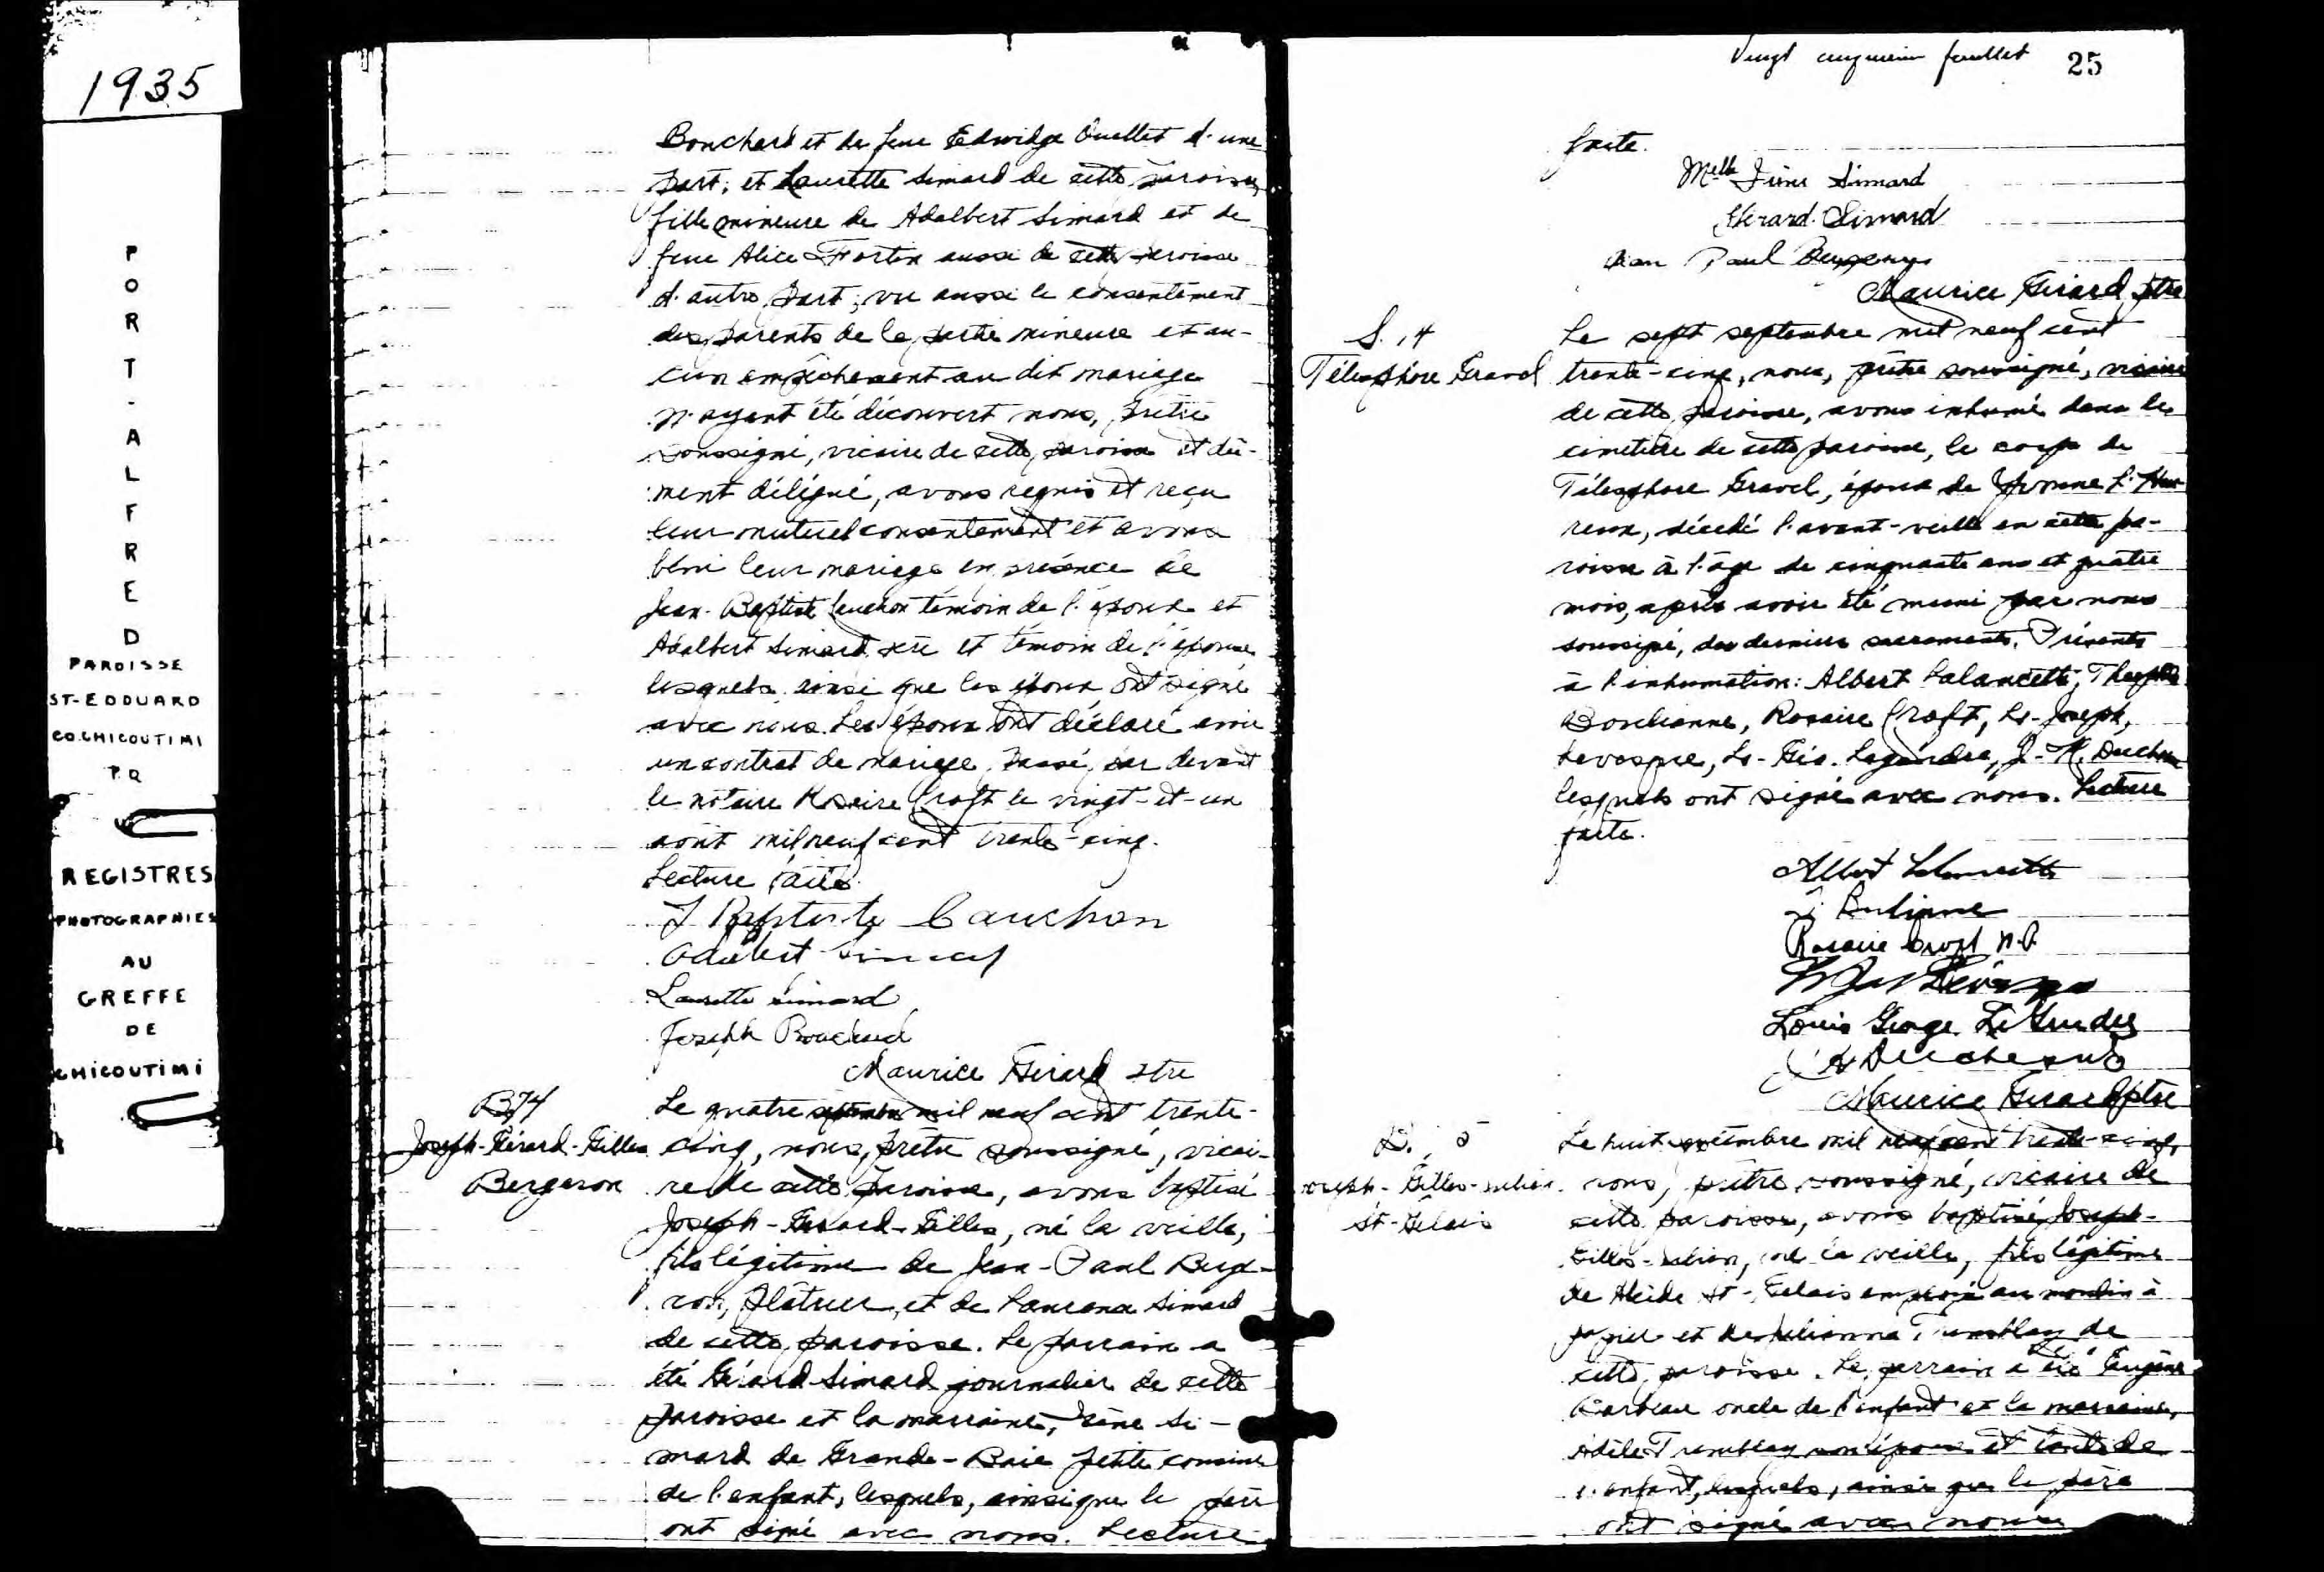 1935
PORT-ALFRED
PAROISSE
ST-EDOUARD
CO. CHICOUTIMI
P.Q
REGISTRES
PHOTOGRAPHIES
AU
GREFFE
DE
CHICOUTIMI
Bouchard et de feue Edwidge Ouellet d'une
part; et Laurette Simard de cette paroisse,
fille mineure de Adalbert Simard et de
feue Alice Fortin aussi de cette paroisse
d'autre part; vu aussi le consentement
des parents de la partie mineure et au-
cun empêchement au dit mariage
n'ayant été découvert nous, prêtre
soussigné, vicaire de cette paroisse et dû-
ment délégué, avons requis et reçu
leur mutuel consentement et avons
béni leur mariage en présence de
Jean-Baptiste Cauchon témoin de l'époux et
Adalbert Simard père et témoin de l'épouse
lesquels ainsi que les époux ont signé
avec nous. Les époux ont déclaré avoir
un contrat de mariage passé par devant
le notaire Rosaire Croft le vingt-et-un
août mil neuf cent trente-cinq.
Lecture faite.
J Baptiste Cauchon
Adalbert Simard
Laurette Simard
Joseph Bouchard
Maurice Girard ptre
B 74
Joseph-Gérard-Gilles
Bergeron
Le quatre septembre mil neuf cent trente-
cinq, nous, prêtre soussigné, vicai-
re de cette paroisse, avons baptisé
Joseph-Gérard-Gilles, né la veille,
fils légitime de Jean-Paul Berge-
ron, plâtrier, et de Laurena Simard
de cette paroisse. Le parrain a
été Gérard Simard journalier de cette
paroisse et la marraine, Irène Si-
mard de Grande-Baie petite cousine
de l'enfant, lesquels, ainsi que le père
ont signé avec nous. Lecture
Vingt cinquième feuillet 25
faite.
Melle Irène Simard
Gérard Simard
Jean Paul Bergeron
Maurice Girard ptre
S. 14
Télesphore Gravel
Le sept septembre mil neuf cent
trente-cinq, nous, prêtre soussigné, vicaire
de cette paroisse, avons inhumé dans le
cimetière de cette paroisse, le corps de
Télesphore Gravel, époux de Yvonne L'Heu-
reux, décédé l'avant-veille en cette pa-
roisse à l'âge de cinquante ans et quatre
mois, après avoir été muni par nous
soussigné, des derniers sacrements. Présents
à l'inhumation: Albert Lalancette,
Boulianne, Rosaire Croft, Ls-Joseph,
Levesque, Ls-Géo. Legendre, J.-H. Duchesne
lesquels ont signé avec nous. Lecture
faite.
Albert Lalancette
Boulianne
Rosaire Croft N.P.
Louis George LeGendre
Duchesne
Maurice Girard ptre
B. 5
Joseph-Gilles-Julien
St-Gelais
Le huit septembre mil neuf cent trente-cinq,
nous, prêtre soussigné, vicaire de
cette paroisse, avons baptisé Joseph-
Gilles-Julien, né la veille, fils légitime
de Alcide St-Gelais employé au moulin à
papier et de Julianna Tremblay de
cette paroisse. Le parrain a été Eugène
Barbeau oncle de l'enfant et la marraine,
Adèle Tremblay son épouse et tante de
l'enfant, lesquels, ainsi que le père
ont signé avec nous